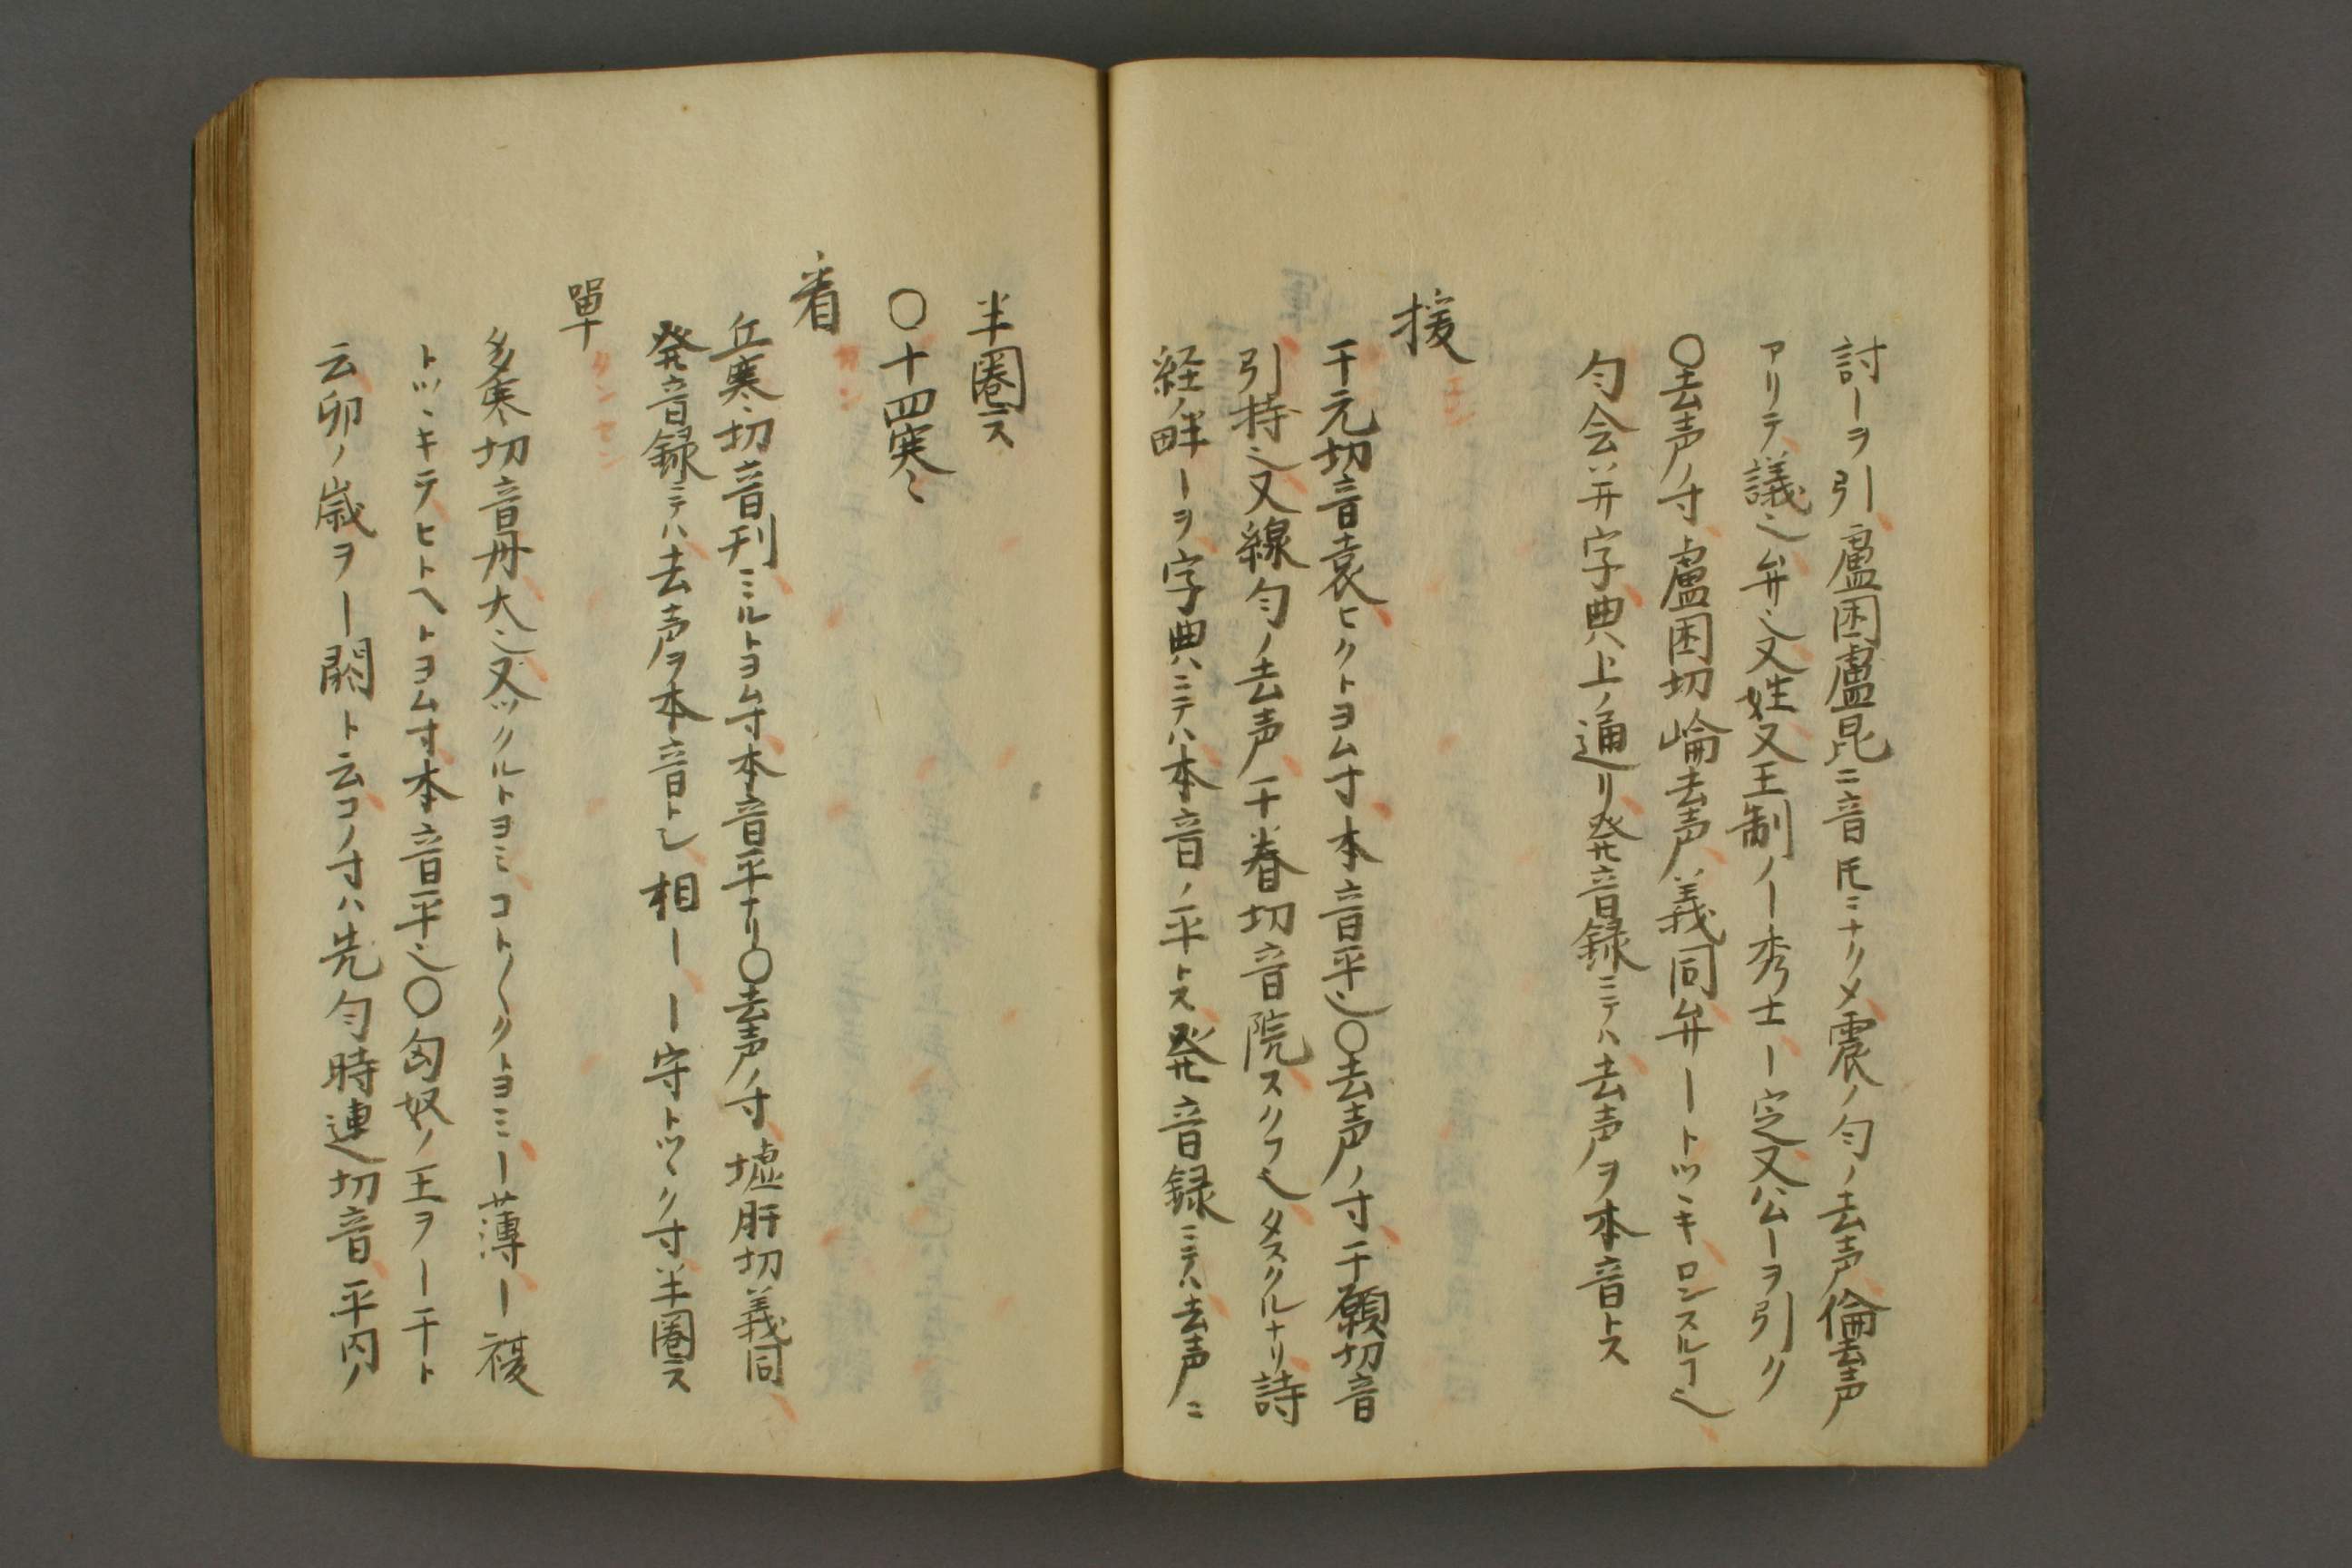 討ーヲ引盧困盧昆ニ音圧ニナリメ震ノ匀ノ去声倫去声
アリテ議也弁也又姓又王制ノー秀士ー定又公ーヲ引ク
〇去声ノ寸盧困切崘去声義同弁ートツヾキロンスルヿ也
匀会并字典ハ上ノ通リ発音録ニテハ去声ヲ本音トス
援
エン
于元切音袁ヒクトヨム寸本音平也〇去声ノ寸于願切音
引持也又線匀ノ去声于眷切音院スクフ也タスクルナリ詩
経ノ畔ーヲ字典ハニテハ本音ノ平トス発音録ニテハ去声ニ
半圏ス
〇十四寒
看
カン
丘寒切音刊ミルトヨム寸本音平ナリ〇去声ノ寸墟肝切義同
発音録ニテハ去声ヲ本音トシ相ーー守トツヾク寸半圏ス
單
タンセン
多寒切音丹大也又ツクルトヨミコト〱クトヨミー薄ー複
トツヾキテヒトヘトヨム寸本音平也〇匈奴ノ王ヲー于ト
云卯ノ歳ヲー閼ト云コノ寸ハ先匀時連切音平内ノ